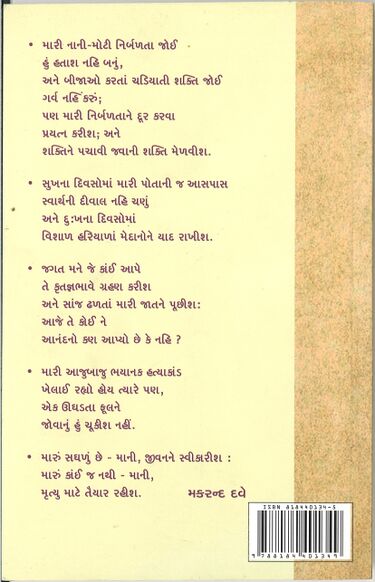 • મારી નાની-મોટી નિર્બળતા જોઈ
હું હતાશ નહિ બનું,
અને બીજાઓ કરતાં ચડિયાતી શક્તિ જોઈ
ગર્વ નહિં કરું;
પણ મારી નિર્બળતાને દૂર કરવા
પ્રયત્ન કરીશ; અને
શક્તિને પચાવી જવાની શક્તિ મેળવીશ.
• સુખના દિવસોમાં મારી પોતાની જ આસપાસ
સ્વાર્થની દીવાલ નહિ ચણું
અને દુ:ખના દિવસોમાં
વિશાળ હરિયાળાં મેદાનોને યાદ રાખીશ.
• જગત મને જે કાંઈ આપે
તે કૃતજ્ઞભાવે ગ્રહણ કરીશ
અને સાંજ ઢળતાં મારી જાતને પૂછીશ:
આજે તે કોઈ ને
આનંદનો કણ આપ્યો છે કે નહિ ?
• મારી આજુબાજુ ભયાનક હત્યાકાંડ
ખેલાઈ રહ્યો હોય ત્યારે પણ,
એક ઊઘડતા ફૂલને
જોવાનું હું ચૂકીશ નહીં.
• મારું સઘળું છે - માની, જીવનને સ્વીકારીશ :
મારું કાંઈ જ નથી - માની,
મૃત્યુ માટે તૈયાર રહીશ. મકરન્દ દવે
ISBN 818440134-5
9 788184 401349